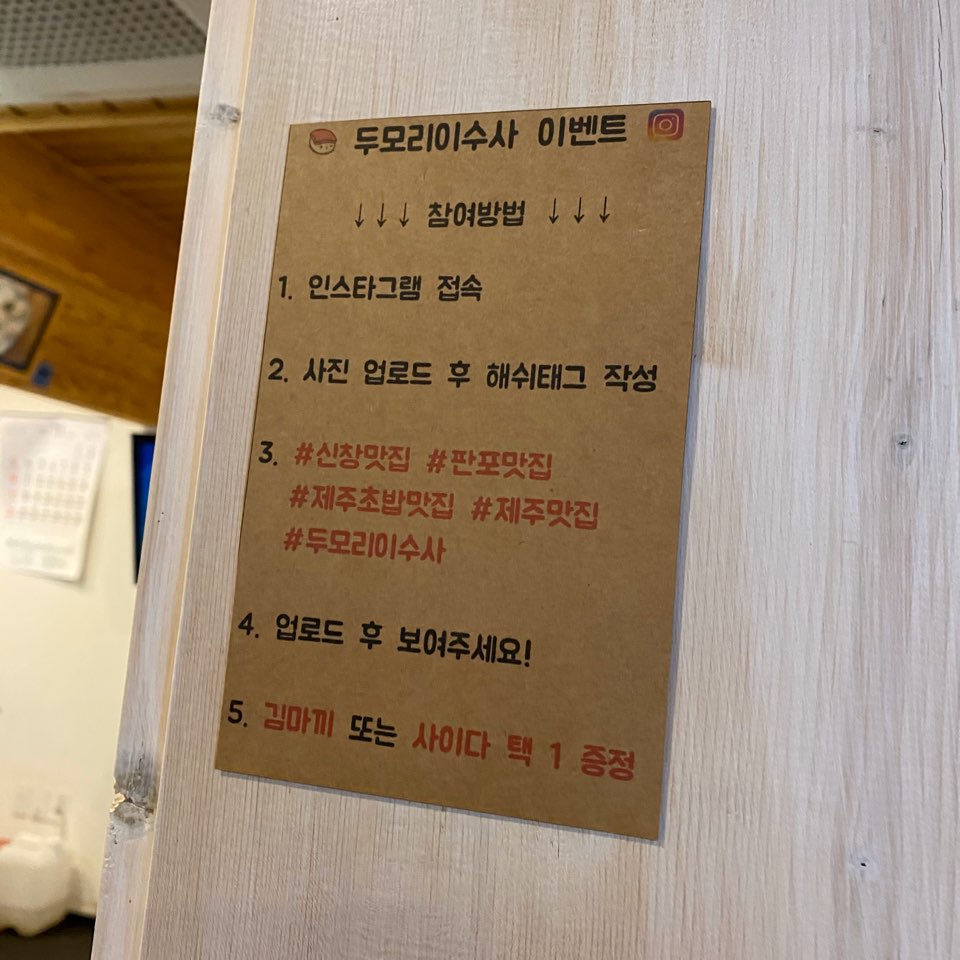 두모리이수사 이벤트
↓↓↓ 참여방법 ↓↓↓
1. 인스타그램 접속
2. 사진 업로드 후 해쉬태그 작성
3. #신창맛집 #판포맛집
#제주초밥맛집 #제주맛집
#두모리이수사
4. 업로드 후 보여주세요!
5. 김마끼 또는 사이다 택 1 증정